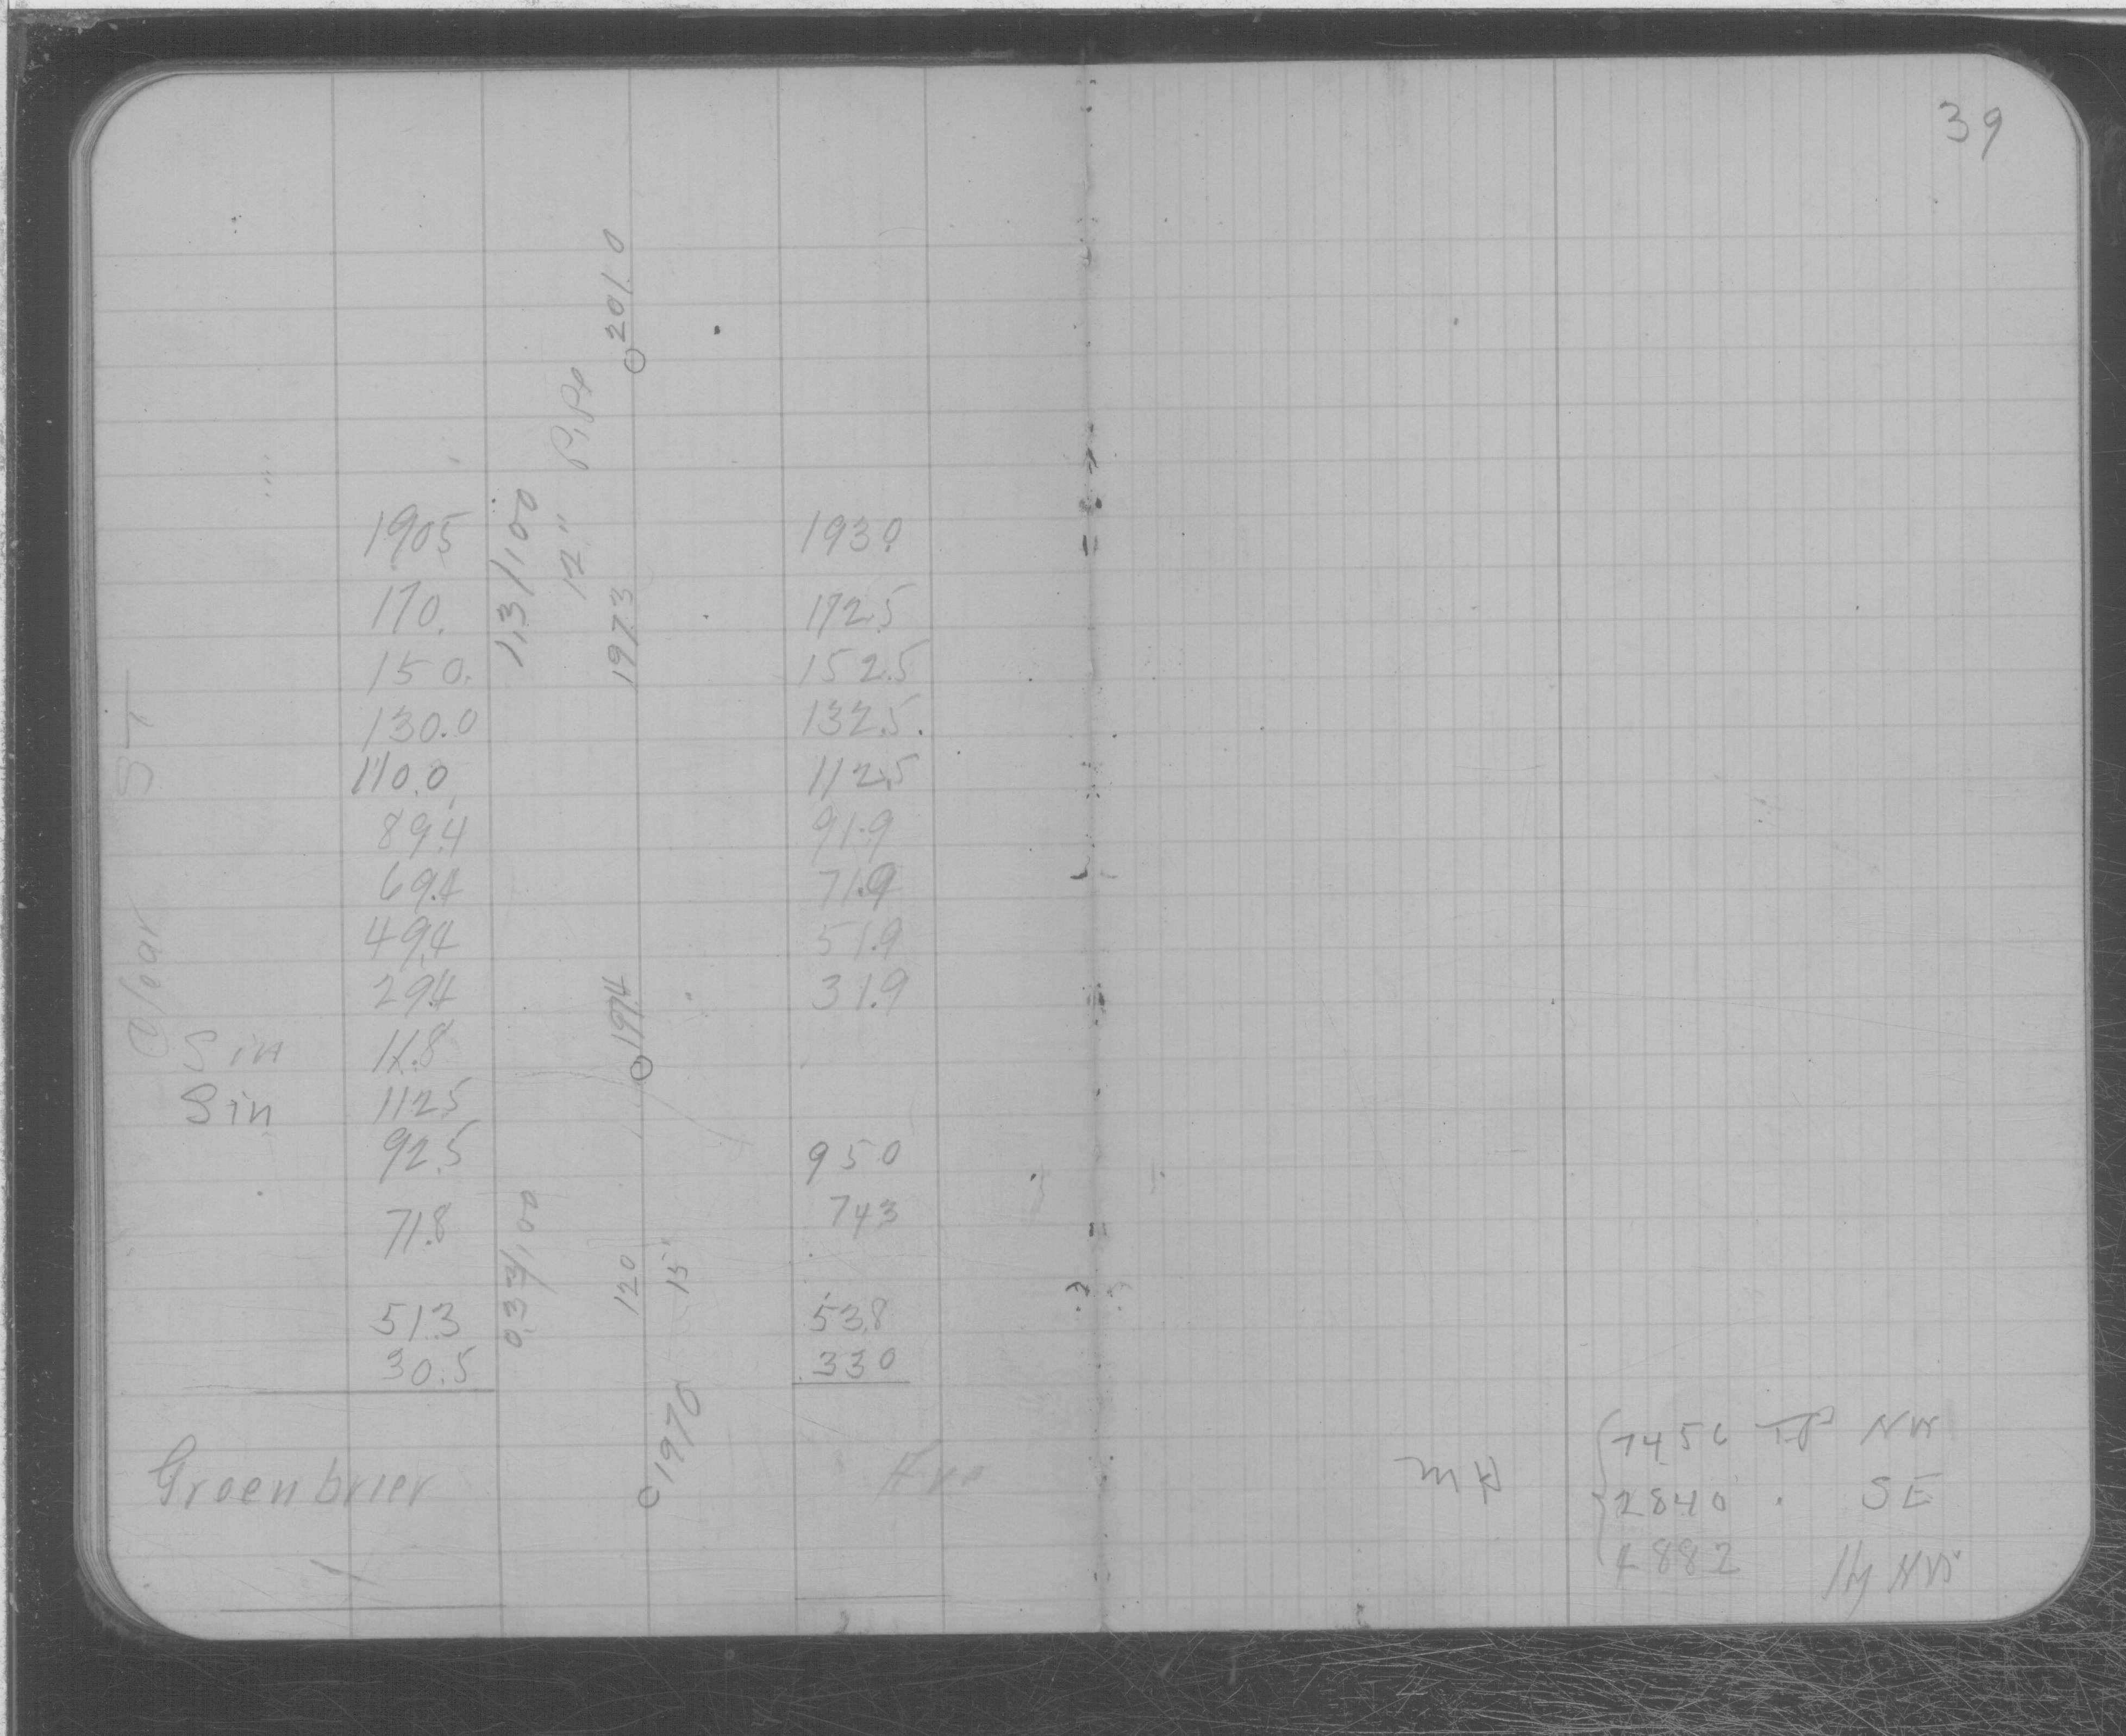 39
201.0
12" Pipe
1905 1.3/100 1930
170. 197.3 172.5
150. 152.5
130.0 132.5.
110.0 112.5
89.4 91.9
69.4 71.9
49.4 51.9
29.4 31.9
Clear ST
Sin 11.8 197.4
Sin 112.5
92.5 950
71.8 743
0.33/100 120 15"
51.3 53.8
30.5 330
1970
Greenbrier Ave
MH
7456 TP NW
2840 . SE
4882 Hy NW